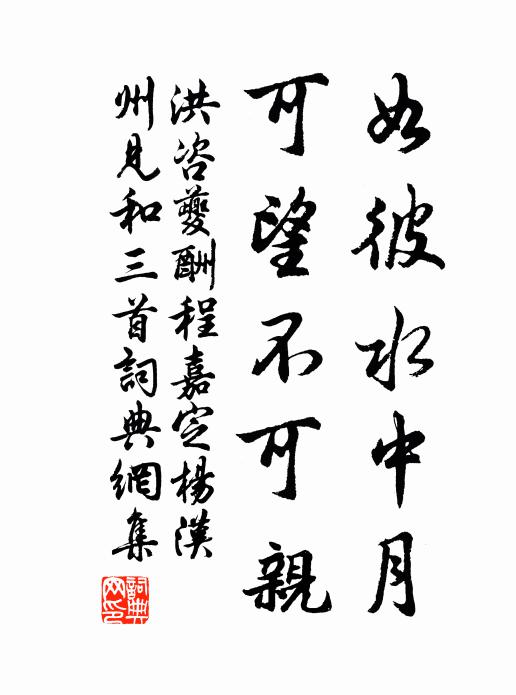 如彼水中月
可望不可親
洪咨夔酬程嘉定楊漢
州見和三首詞典網集
詞典網印